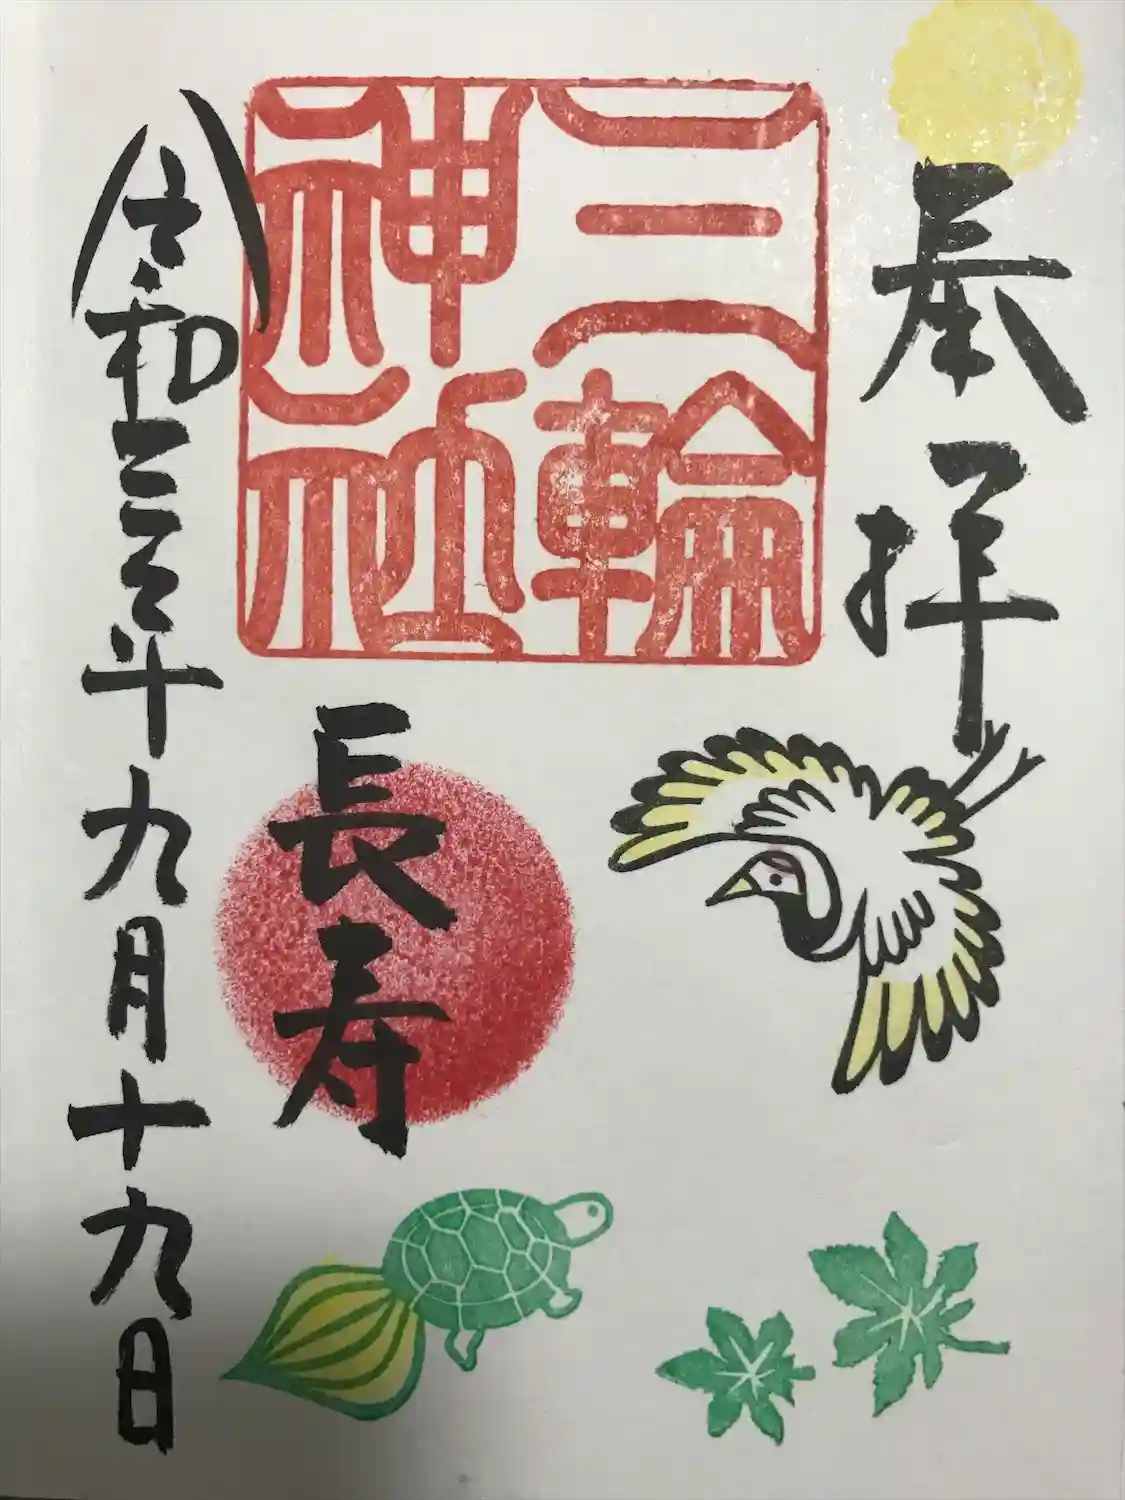 奉拝
三輪
神社
長寿
令和三年九月十九日